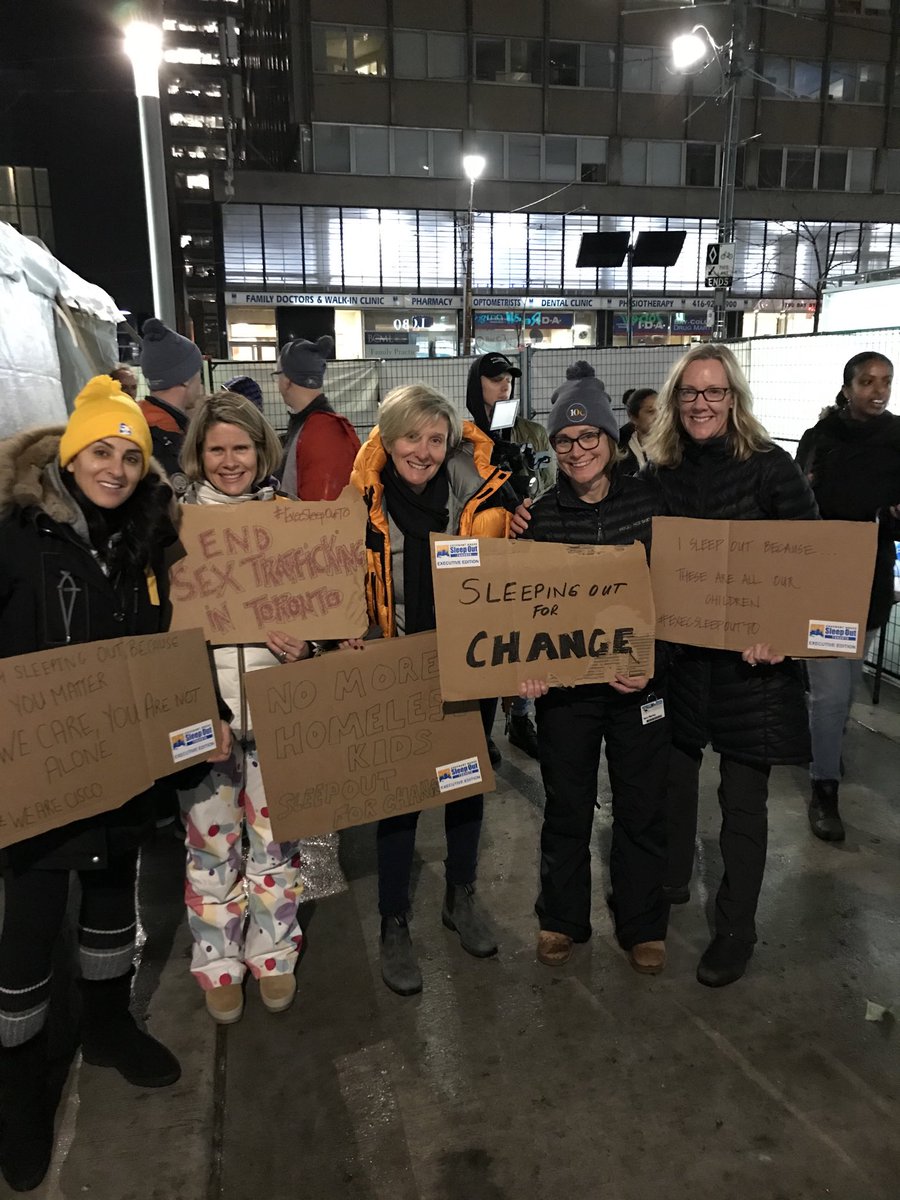 FAMILY DOCTORS & WALK-IN CLINIC
PHARMACY
OPTOMETRISTS & DENTAL CLINIC
PHYSIOTHERAPY
416-92
ENDS
1090
Family Practice
I·D·A
I·D·A
#ExecSleepOutTO
END
SEX TRAFFICKING
IN TORONTO
SLEEPING OUT BECAUSE
YOU MATTER
WE CARE, YOU ARE NOT
ALONE
#WE ARE CISCO
Sleep Out
EXECUTIVE EDITION
NO MORE
HOMELESS
KIDS
SLEEPOUT
FOR CHANGE
Sleep Out
EXECUTIVE EDITION
Sleep Out
EXECUTIVE EDITION
SLEEPING OUT
FOR
CHANGE
I SLEEP OUT BECAUSE
THESE ARE ALL OUR
CHILDREN
#EXECSLEEPOUTTO
Sleep Out
EXECUTIVE EDITION